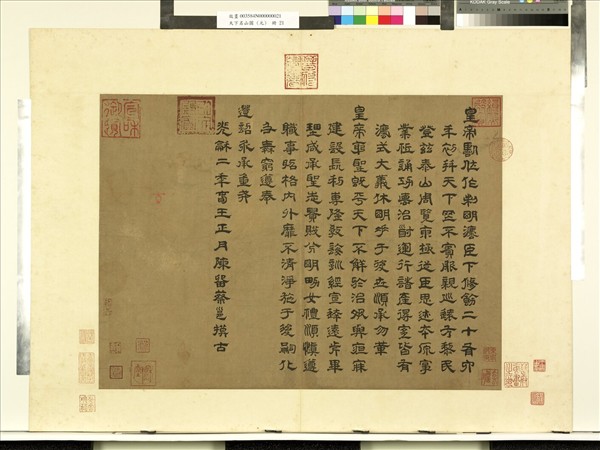 KODAK Gray Scale
天下名山圖（元） 冊
皇帝臨位作制明法臣下脩飭二十有六
年初并天下罔不賓服親巡遠方黎民
登茲泰山周覽東極從臣思迹本原事
業祗誦功德治道運行諸產得宜皆有
法式大義休明垂于後世順承勿革
皇帝躬聖既平天下不懈於治夙興夜寐
建設長利專隆教誨訓經宣達遠近畢
理咸承聖志貴賤分明男女禮順慎遵
職事昭隔內外靡不清淨施于後嗣化
及無窮遵奉
遺詔永承重戒
光和二年春王正月陳留蔡邕摸古